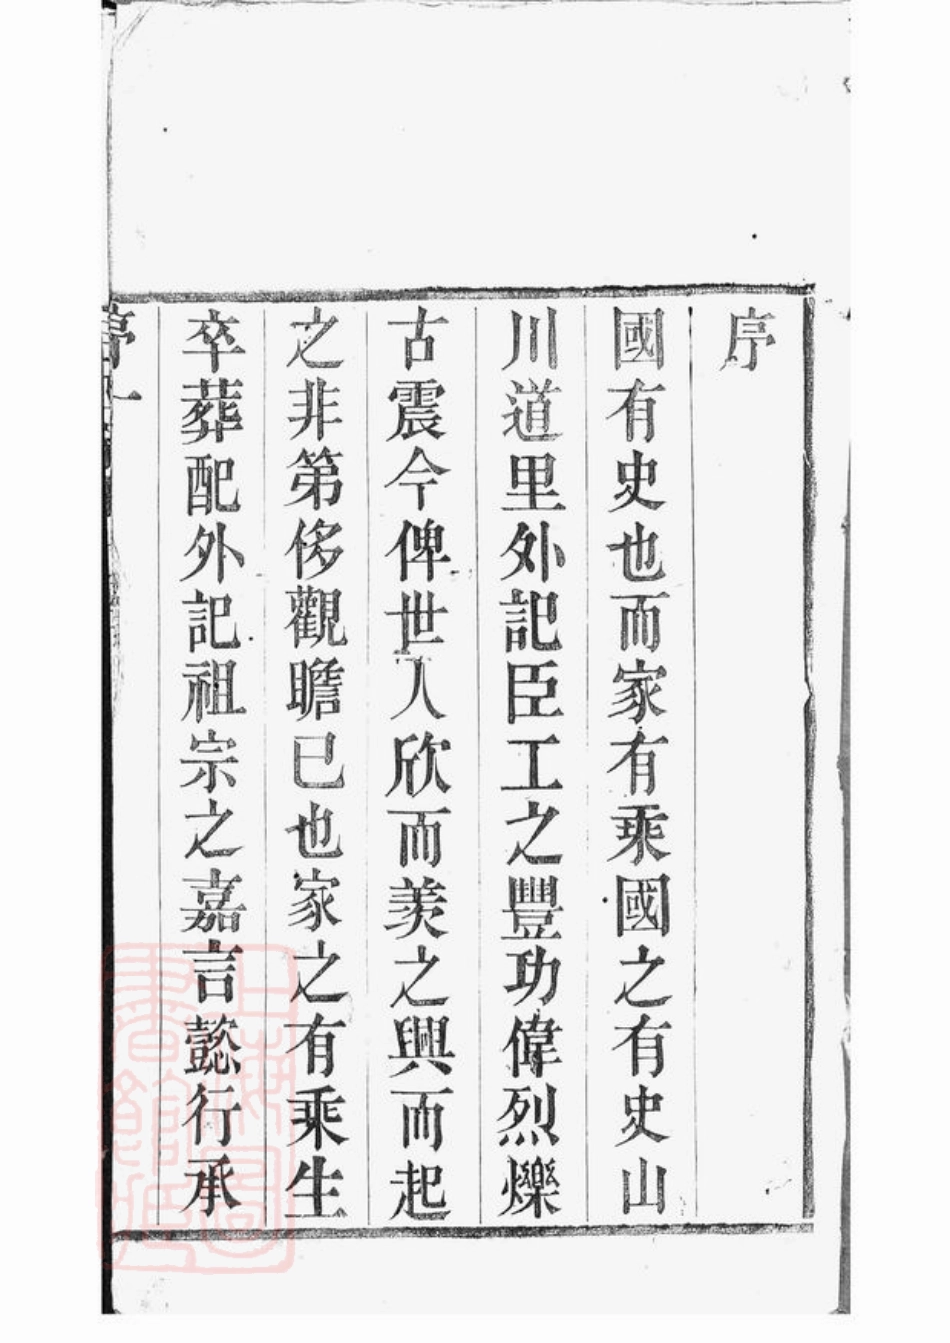 序
國有史也而家有乘國之有史山
川道里外記臣工之豐功偉烈爍
古震今俾世人欣而羡之興而起
之非第侈觀瞻已也家之有乘生
卒葬配外記祖宗之嘉言懿行承
序 一
上海圖書館藏